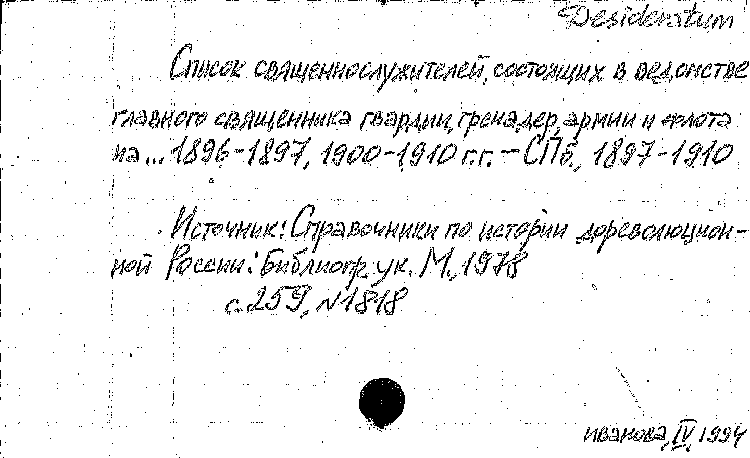 Desideratum
Список священнослужителей, состоящих в ведомстве
главного священника гвардии, гренадер, армии и флота
на... 1896-1897, 1900-1910 г.г. - СПб., 1897-1910
Источник: Справочники по истории дореволюцион-
ной России: Библиогр. ук. М., 1978
с. 259, N 1818
иванова, IV, 1994